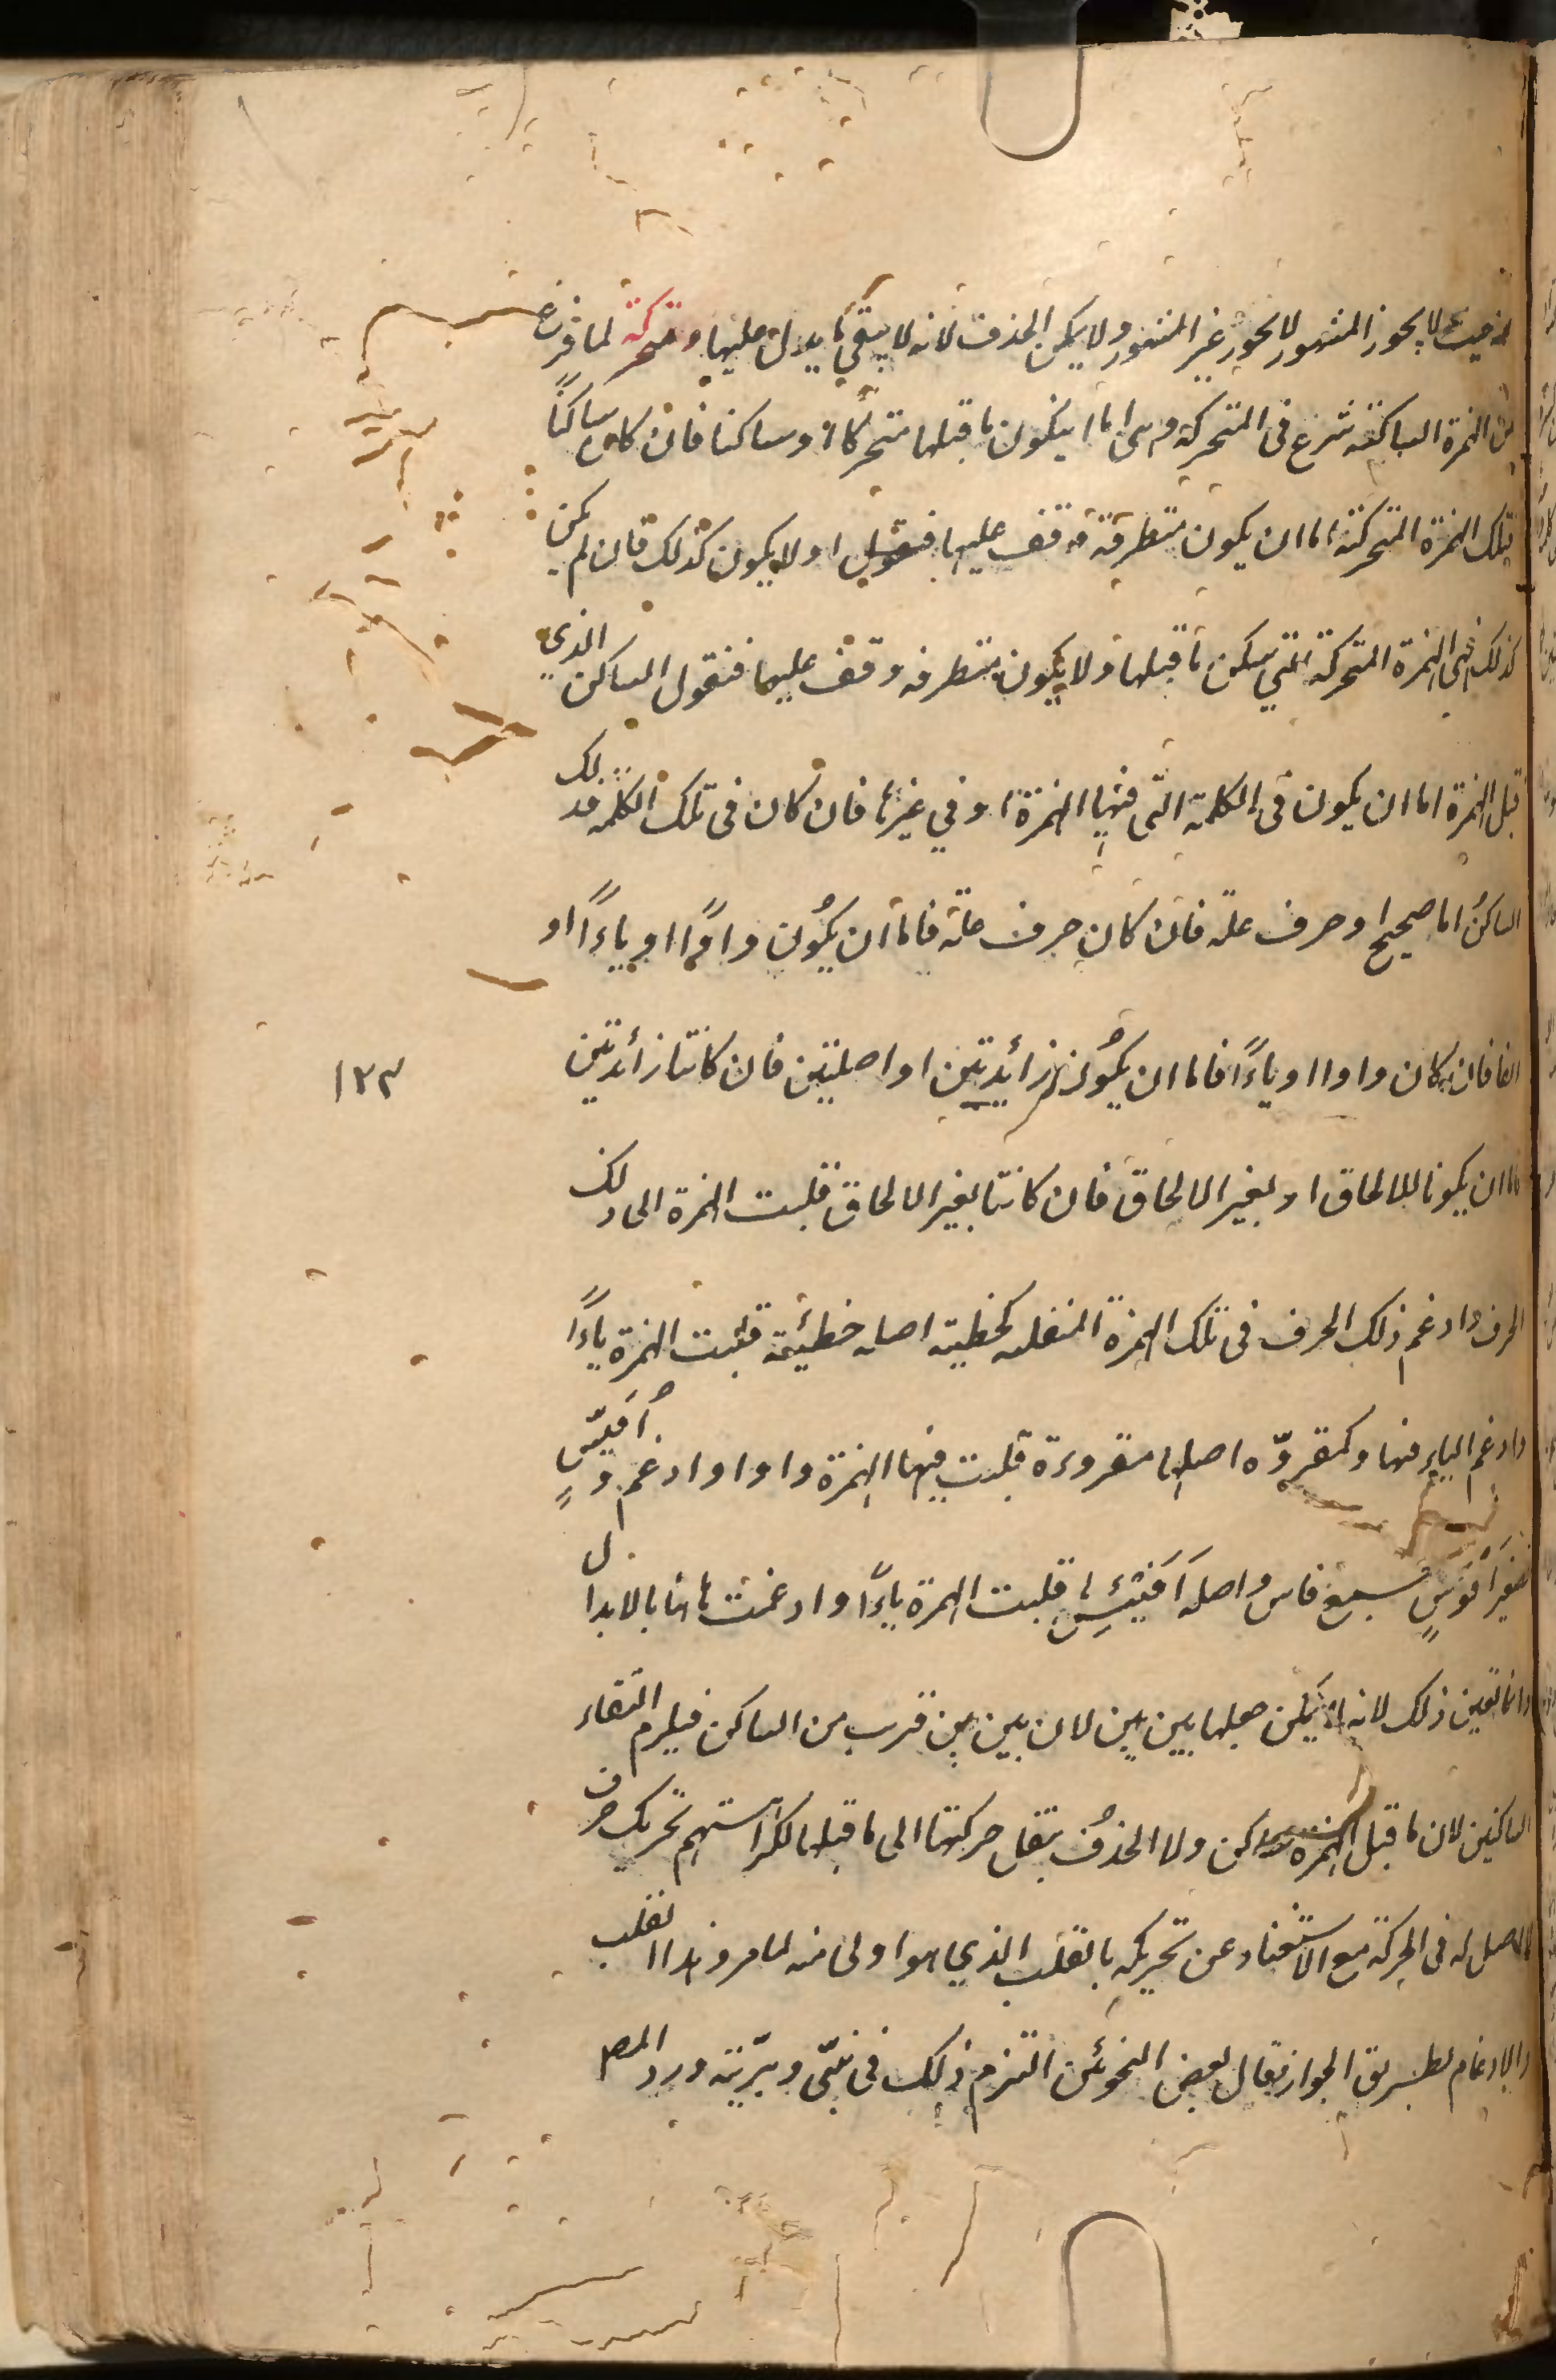 اذ حيث لا يجوز المشهور لا يجوز غير المشهور ولا يمكن الحذف لانه لا يبقى ما يدل عليها ومتحركة لما فرغ
من الهمزة الساكنة شرع فى المتحركة وهى اما ان يكون ما قبلها متحركا او ساكنا فان كان ساكنًا
فتلك الهمزة المتحركة اما ان يكون متطرفة وقف عليها فنقول او لا يكون كذلك فان لم يكن
كذلك فهى الهمزة المتحركة التي سكن ما قبلها ولا يكون متطرفه وقف عليها فنقول الساكن الذي
قبل الهمزة اما ان يكون فى الكلمة التى فيها الهمزة او في غيرها فان كان فى تلك الكلمة فذلك
الساكنُ اما صحيح او حرف علة فان كان حرف علة فاما ان يكُون واوًا او ياءًا او
الفا فان كان واوا او ياءًا فاما ان يكُونا زائدتين او اصليتين فان كانتا زائدتين
١٢٣
فاما ان يكونا للالحاق او لغير الالحاق فان كانتا لغير الالحاق قلبت الهمزة الى ذلك
الحرف وادغم ذلك الحرف فى تلك الهمزة المنقلبه كخطية اصله خطيئة قلبت الهمزة ياءًا
وادغم الياء فيها وكمقروّه اصلها مقروءة قلبت فيها الهمزة واوا وادغم وافَيّسٍ
تصغير افؤسٍ جمع فاس واصله اُفَيْئِسٍ قلبت الهمزة ياءًا وادغمت ما قبلها بالابدال
وانما تعين ذلك لانه لا يمكن جعلها بين بين لان بين بين قرب من الساكن فيلزم التقاء
الساكنين لان ما قبل الهمزة ساكن ولا الحذفُ بنقل حركتها الى ما قبلها لكراهتهم تحريك حرف
لا اصل له فى الحركة مع الاستغناء عن تحريكه بالقلب الذي هو اولى منه لما مر وهذا القلب
والادغام بطريق الجواز فقال بعض النحوئين التزم ذلك فى نبّى وبرّية ورد المص